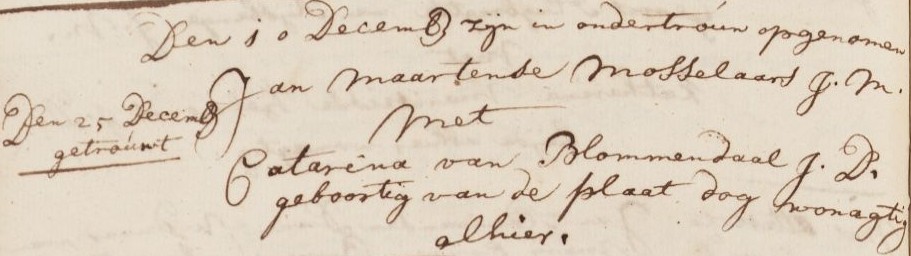 Den 10 Decemb zijn in ondertrouw opgenomen
Jan Maartense Mosselaars J. M.
Den 25 Decemb
getrouwt
Met
Catarina van Blommendaal J. D.
geboortig van de plaat dog wonagtig
alhier.